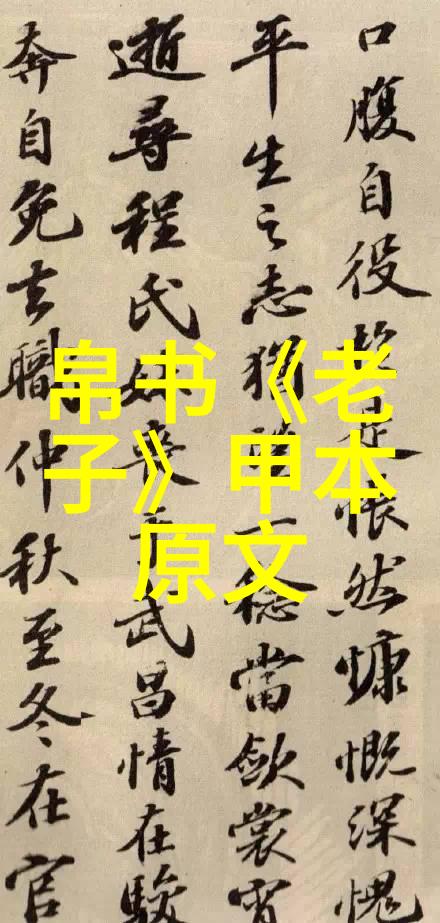 口腹自役於是悵然慷慨深愧
平生之志猶一稔當斂裳宵
逝尋程氏妹喪于武昌情在駿
奔自免去職仲秋至冬在官
帛书《老
子》甲本
原文